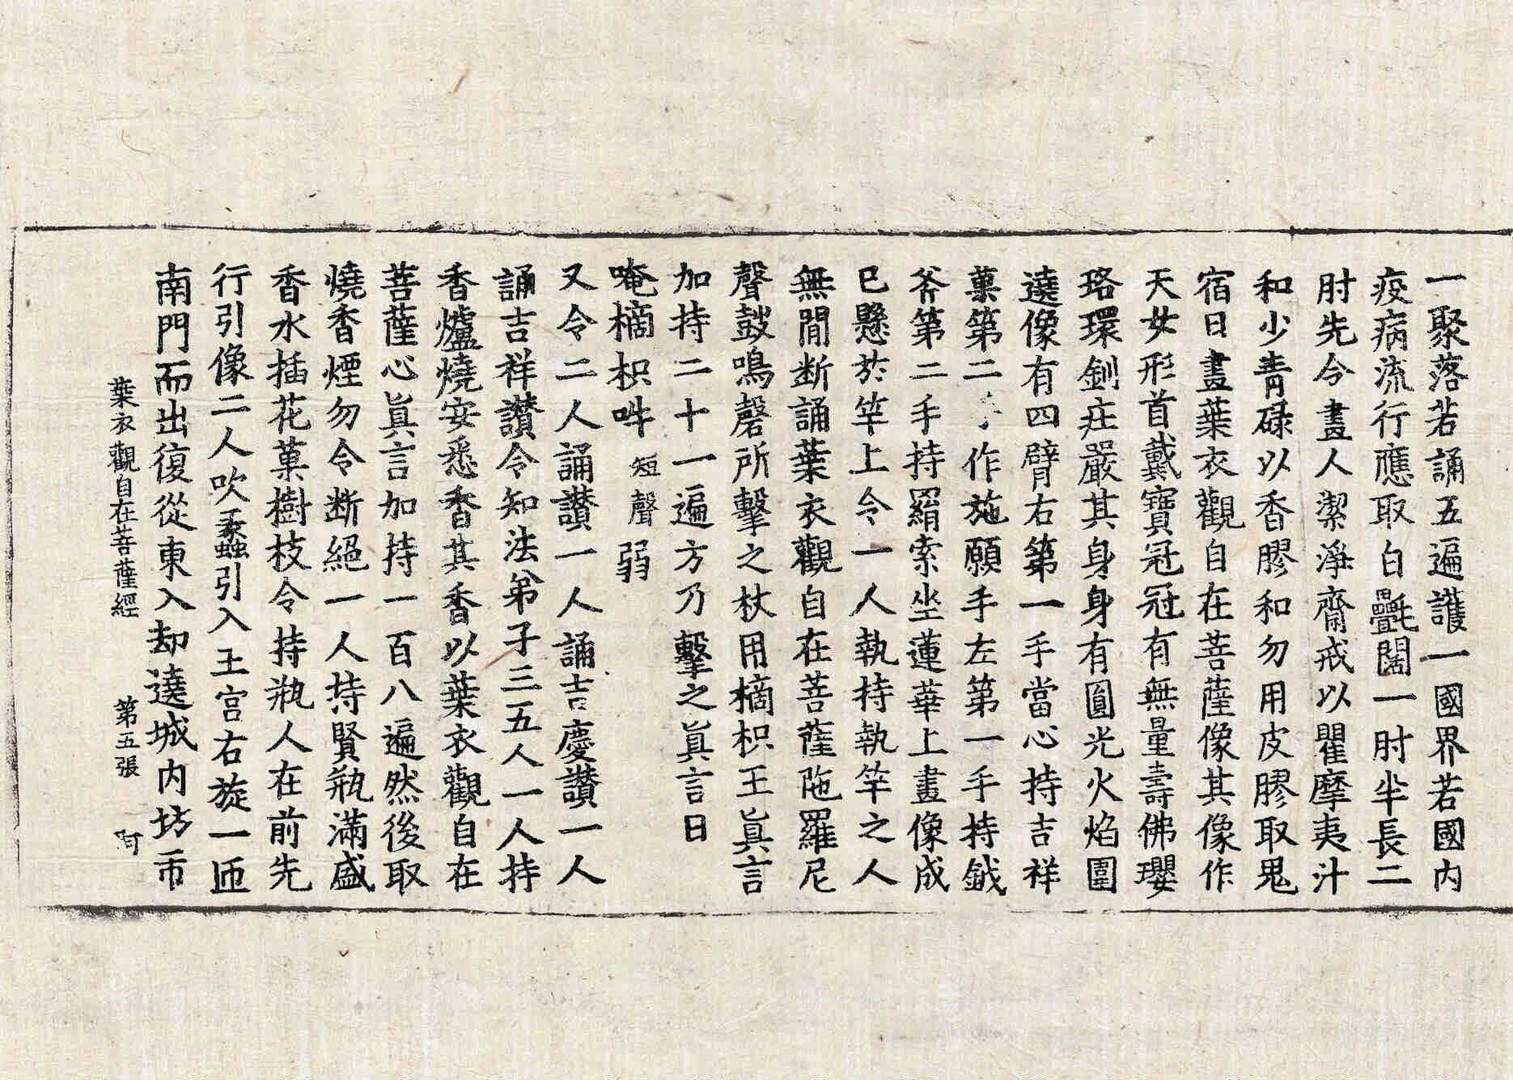 一聚落若誦五遍護一國界若國内
疫病流行應取白㲲闊一肘半長二
肘先令畫人潔淨齋戒以瞿摩夷汁
和少青碌以香膠和勿用皮膠取鬼
宿日畫葉衣觀自在菩薩像其像作
天女形首戴寶冠冠有無量壽佛瓔
珞環釧莊嚴其身身有圓光火焰圍
遶像有四臂右第一手當心持吉祥
菓第二手作施願手左第一手持鉞
斧第二手持羂索坐蓮華上畫像成
已懸於竿上令一人執持執竿之人
無間断誦葉衣觀自在菩薩陁羅尼
聲鼓鳴磬所擊之杖用樀枳王眞言
加持二十一遍方乃擊之眞言曰
唵樀枳吽 短聲 弱
又令二人誦讃一人誦吉慶讃一人
誦吉祥讃令知法弟子三五人一人持
香爐燒安悉香其香以葉衣觀自在
菩薩心眞言加持一百八遍然後取
燒香煙勿令断絕一人持賢瓶滿盛
香水插花菓樹枝令持瓶人在前先
行引像二人吹蠡引入王宫右旋一匝
南門而出復從東入却遶城内坊市
葉衣觀自在菩薩經 第五張 阿